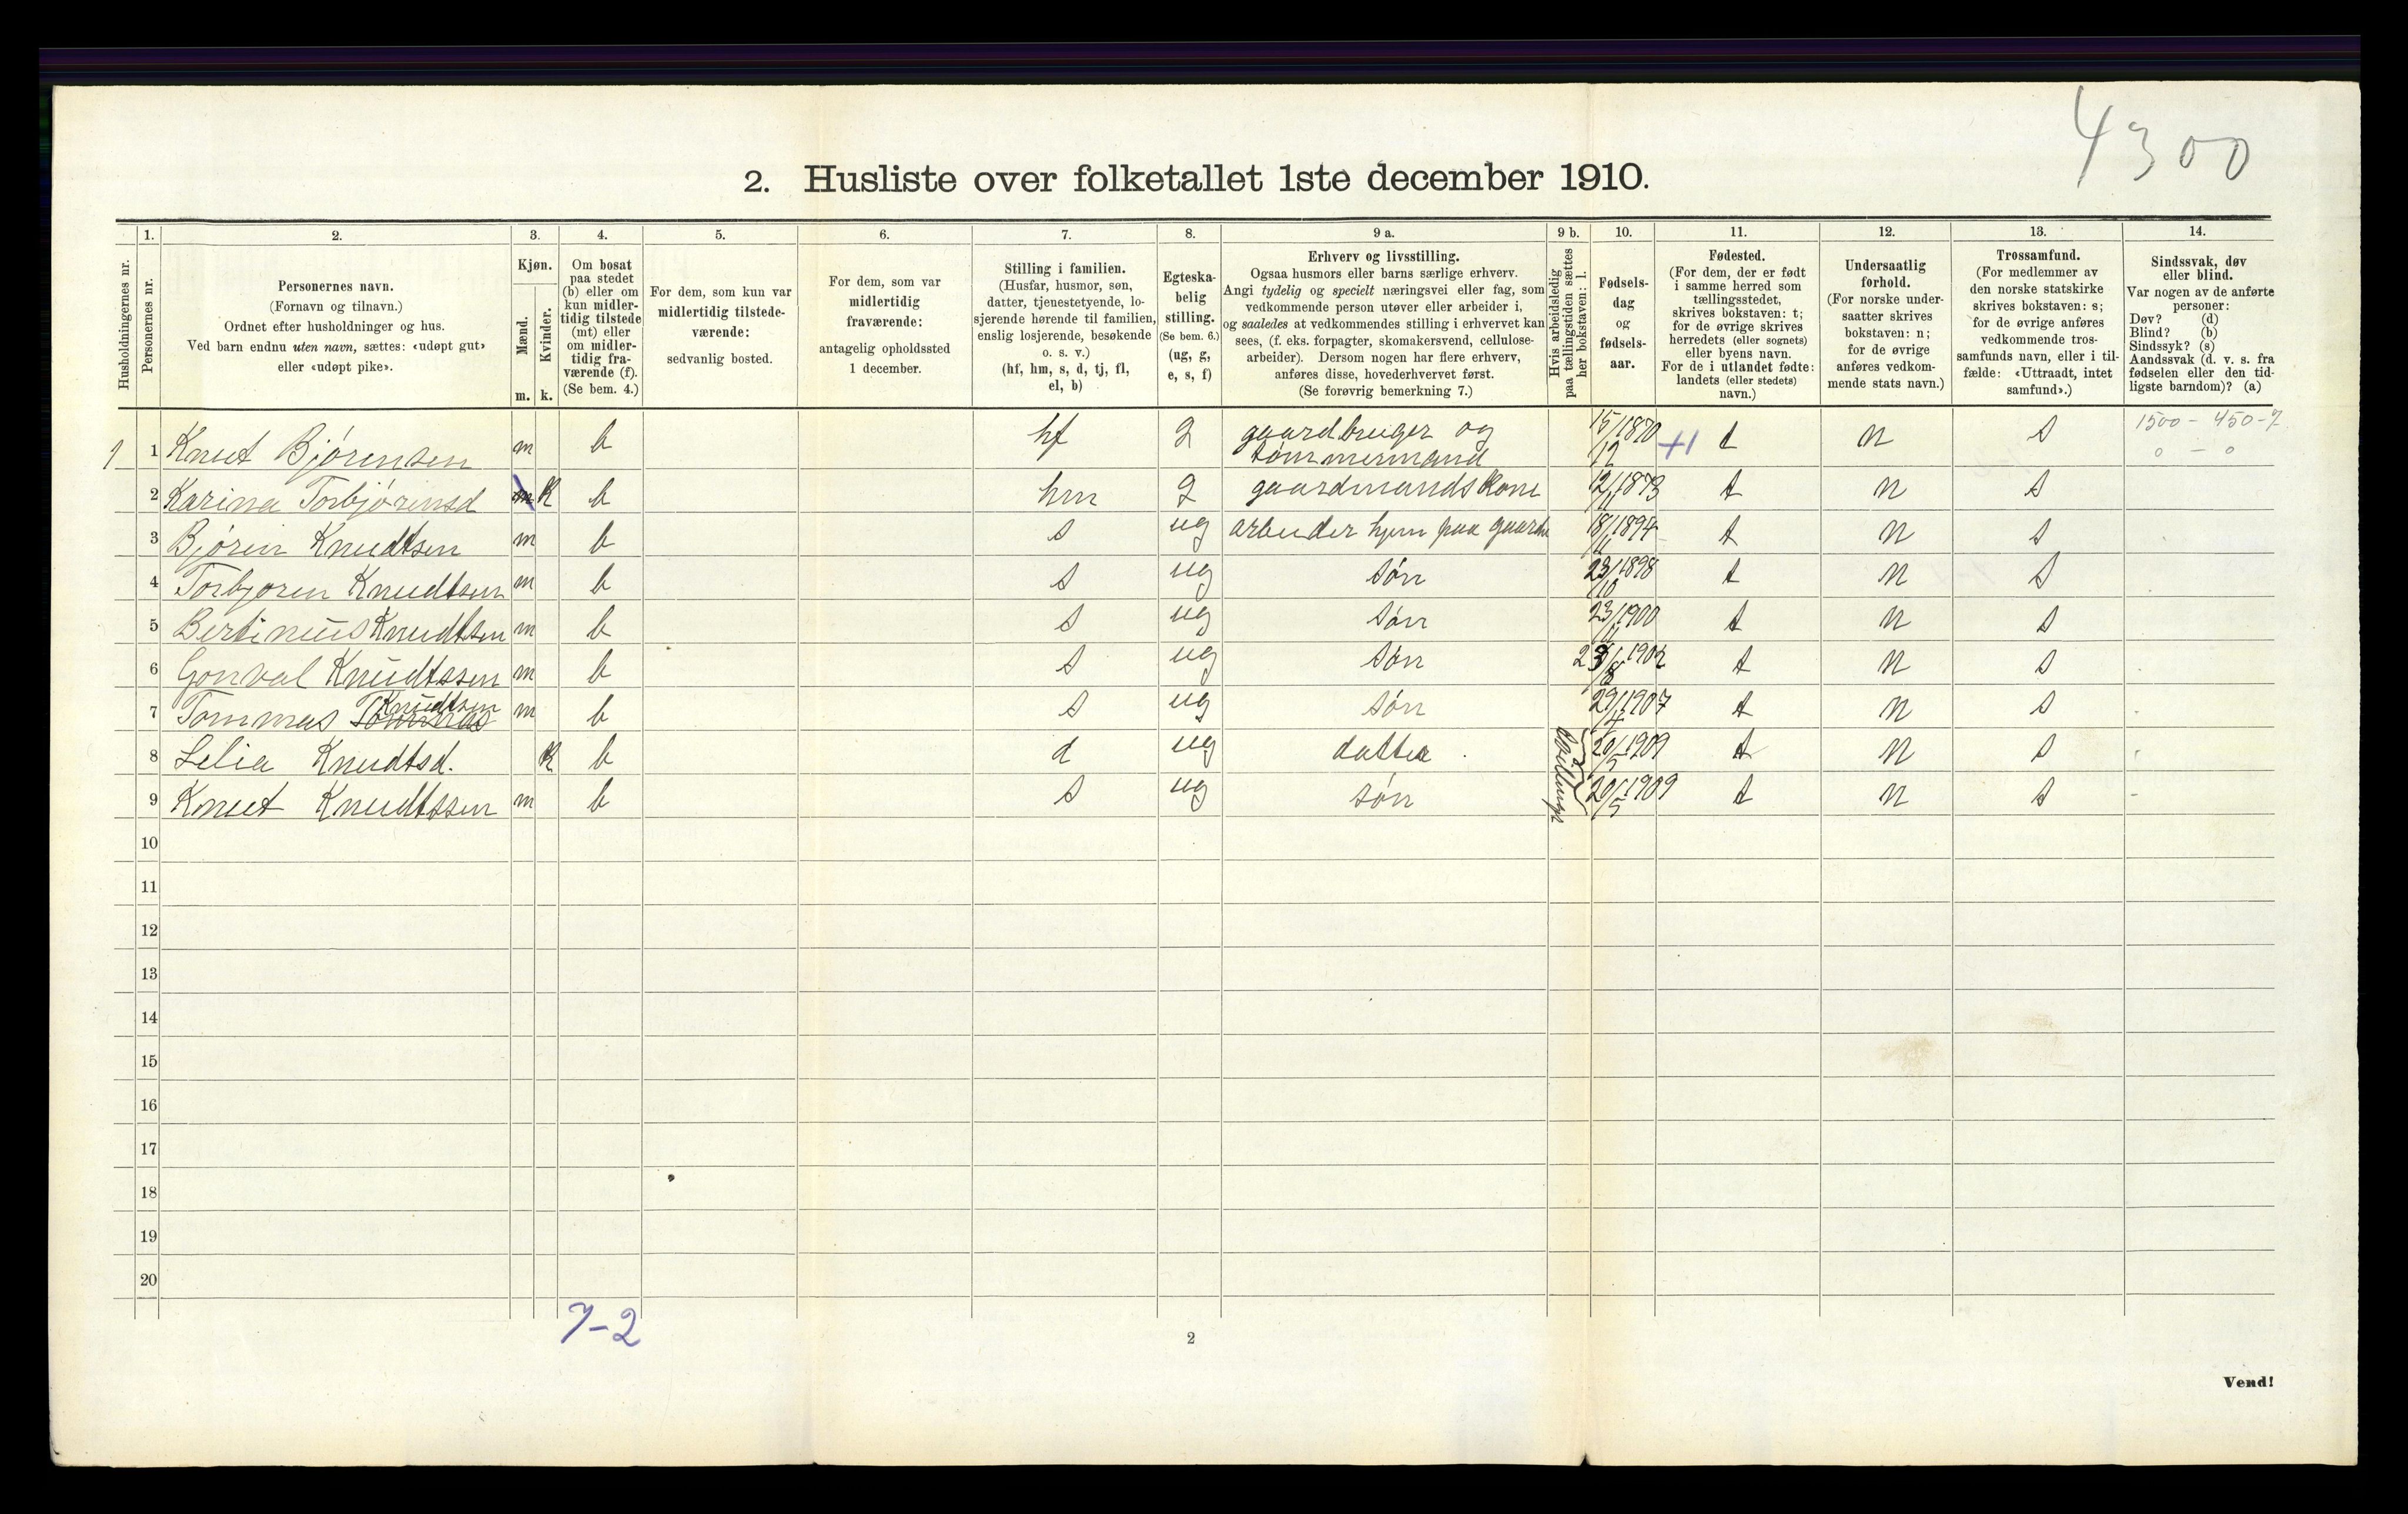 4300
2. Husliste over folketallet 1ste december 1910.
Husholdningernes nr.
1.
Personernes nr.
2.
Personernes navn.
(Fornavn og tilnavn.)
Ordnet efter husholdninger og hus.
Ved barn endnu uten navn, sættes: «udøpt gut»
eller «udøpt pike».
3.
Kjøn.
Mænd.
Kvinder.
m. k.
4.
Om bosat
paa stedet
(b) eller om
kun midler-
tidig tilstede
(mt) eller
om midler-
tidig fra-
værende (f).
(Se bem. 4.)
5.
For dem, som kun var
midlertidig tilstede-
værende:
sedvanlig bosted.
6.
For dem, som var
midlertidig
fraværende:
antagelig opholdssted
1 december.
7.
Stilling i familien.
(Husfar, husmor, søn,
datter, tjenestetyende, lo-
sjerende hørende til familien,
enslig losjerende, besøkende
o. s. v.)
(hf, hm, s, d, tj, fl,
el, b)
8.
Egteska-
belig
stilling.
(Se bem. 6.)
(ug, g,
e, s, f)
9 a.
Erhverv og livsstilling.
Ogsaa husmors eller barns særlige erhverv.
Angi tydelig og specielt næringsvei eller fag, som
vedkommende person utøver eller arbeider i,
og saaledes at vedkommendes stilling i erhvervet kan
sees, (f. eks. forpagter, skomakersvend, cellulose-
arbeider). Dersom nogen har flere erhverv,
anføres disse, hovederhvervet først.
(Se forøvrig bemerkning 7.)
9 b.
Hvis arbeidsledig
paa tællingstiden sættes
her bokstaven: l.
10.
Fødsels-
dag
og
fødsels-
aar.
11.
Fødested.
(For dem, der er født
i samme herred som
tællingsstedet,
skrives bokstaven: t;
for de øvrige skrives
herredets (eller sognets)
eller byens navn.
For de i utlandet fødte:
landets (eller stedets)
navn.)
12.
Undersaatlig
forhold.
(For norske under-
saatter skrives
bokstaven: n;
for de øvrige
anføres vedkom-
mende stats navn.)
13.
Trossamfund.
(For medlemmer av
den norske statskirke
skrives bokstaven: s;
for de øvrige anføres
vedkommende tros-
samfunds navn, eller i til-
fælde: «Uttraadt, intet
samfund».)
14.
Sindssvak, døv
eller blind.
Var nogen av de anførte
personer:
Døv? (d)
Blind? (b)
Sindssyk? (s)
Aandssvak (d. v. s. fra
fødselen eller den tid-
ligste barndom)? (a)
1 1 Knut Bjørensen m b hf g gaardbruger og tømmermand 15/12 1870 +1 t n s 1500 - 450-7
0 - 0
2 Karina Torbjørensd m K b hm g gaardmandskone 12/11 1873 t n s
3 Bjøren Knudtsen m b s ug arbeider hjem paa 18/11 1894 t n s
4 Torbjoren Knudtsen m b s ug søn 23/10 1898 t n s
5 Bertinius Knudtsen m b s ug søn 23/11 1900 t n s
6 Gonval Knudtssen m b s ug søn 1902 t n s
7 Tommas Tommas Knudtsen m b s ug søn 29/4 1907 t n s
8 Lelia Knudtsd. K b d ug datter 20/5 1909 t n s
9 Knut Knudtssen m b s ug søn 20/5 1909 t n s
10
11
12
13
14
15
16
17
18
19
20
7-2
2
Vend!